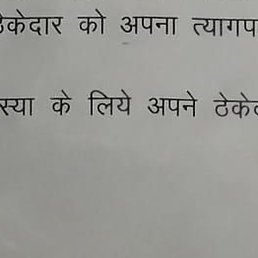 ठेकेदार को अपना त्यागप
स्या के लिये अपने ठेके